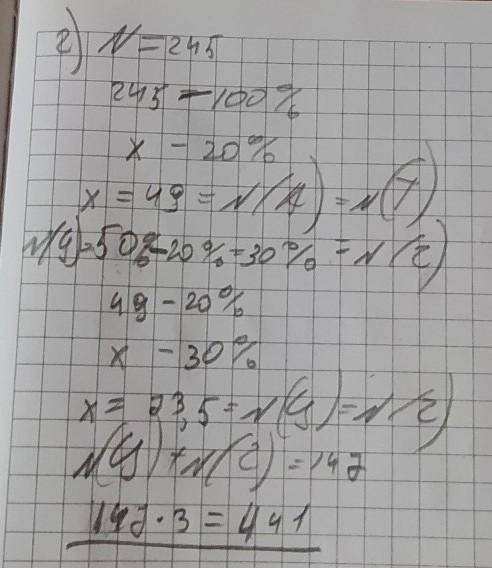 г) N = 245
245 - 100%
x - 20%
x = 49 = N(A) = N(T)
N(У) = 50% - 20% = 30% = N(Г)
49 - 20%
x - 30%
x = 73,5 = N(У) = N(Г)
N(У) + N(Г) = 147
147 · 3 = 441